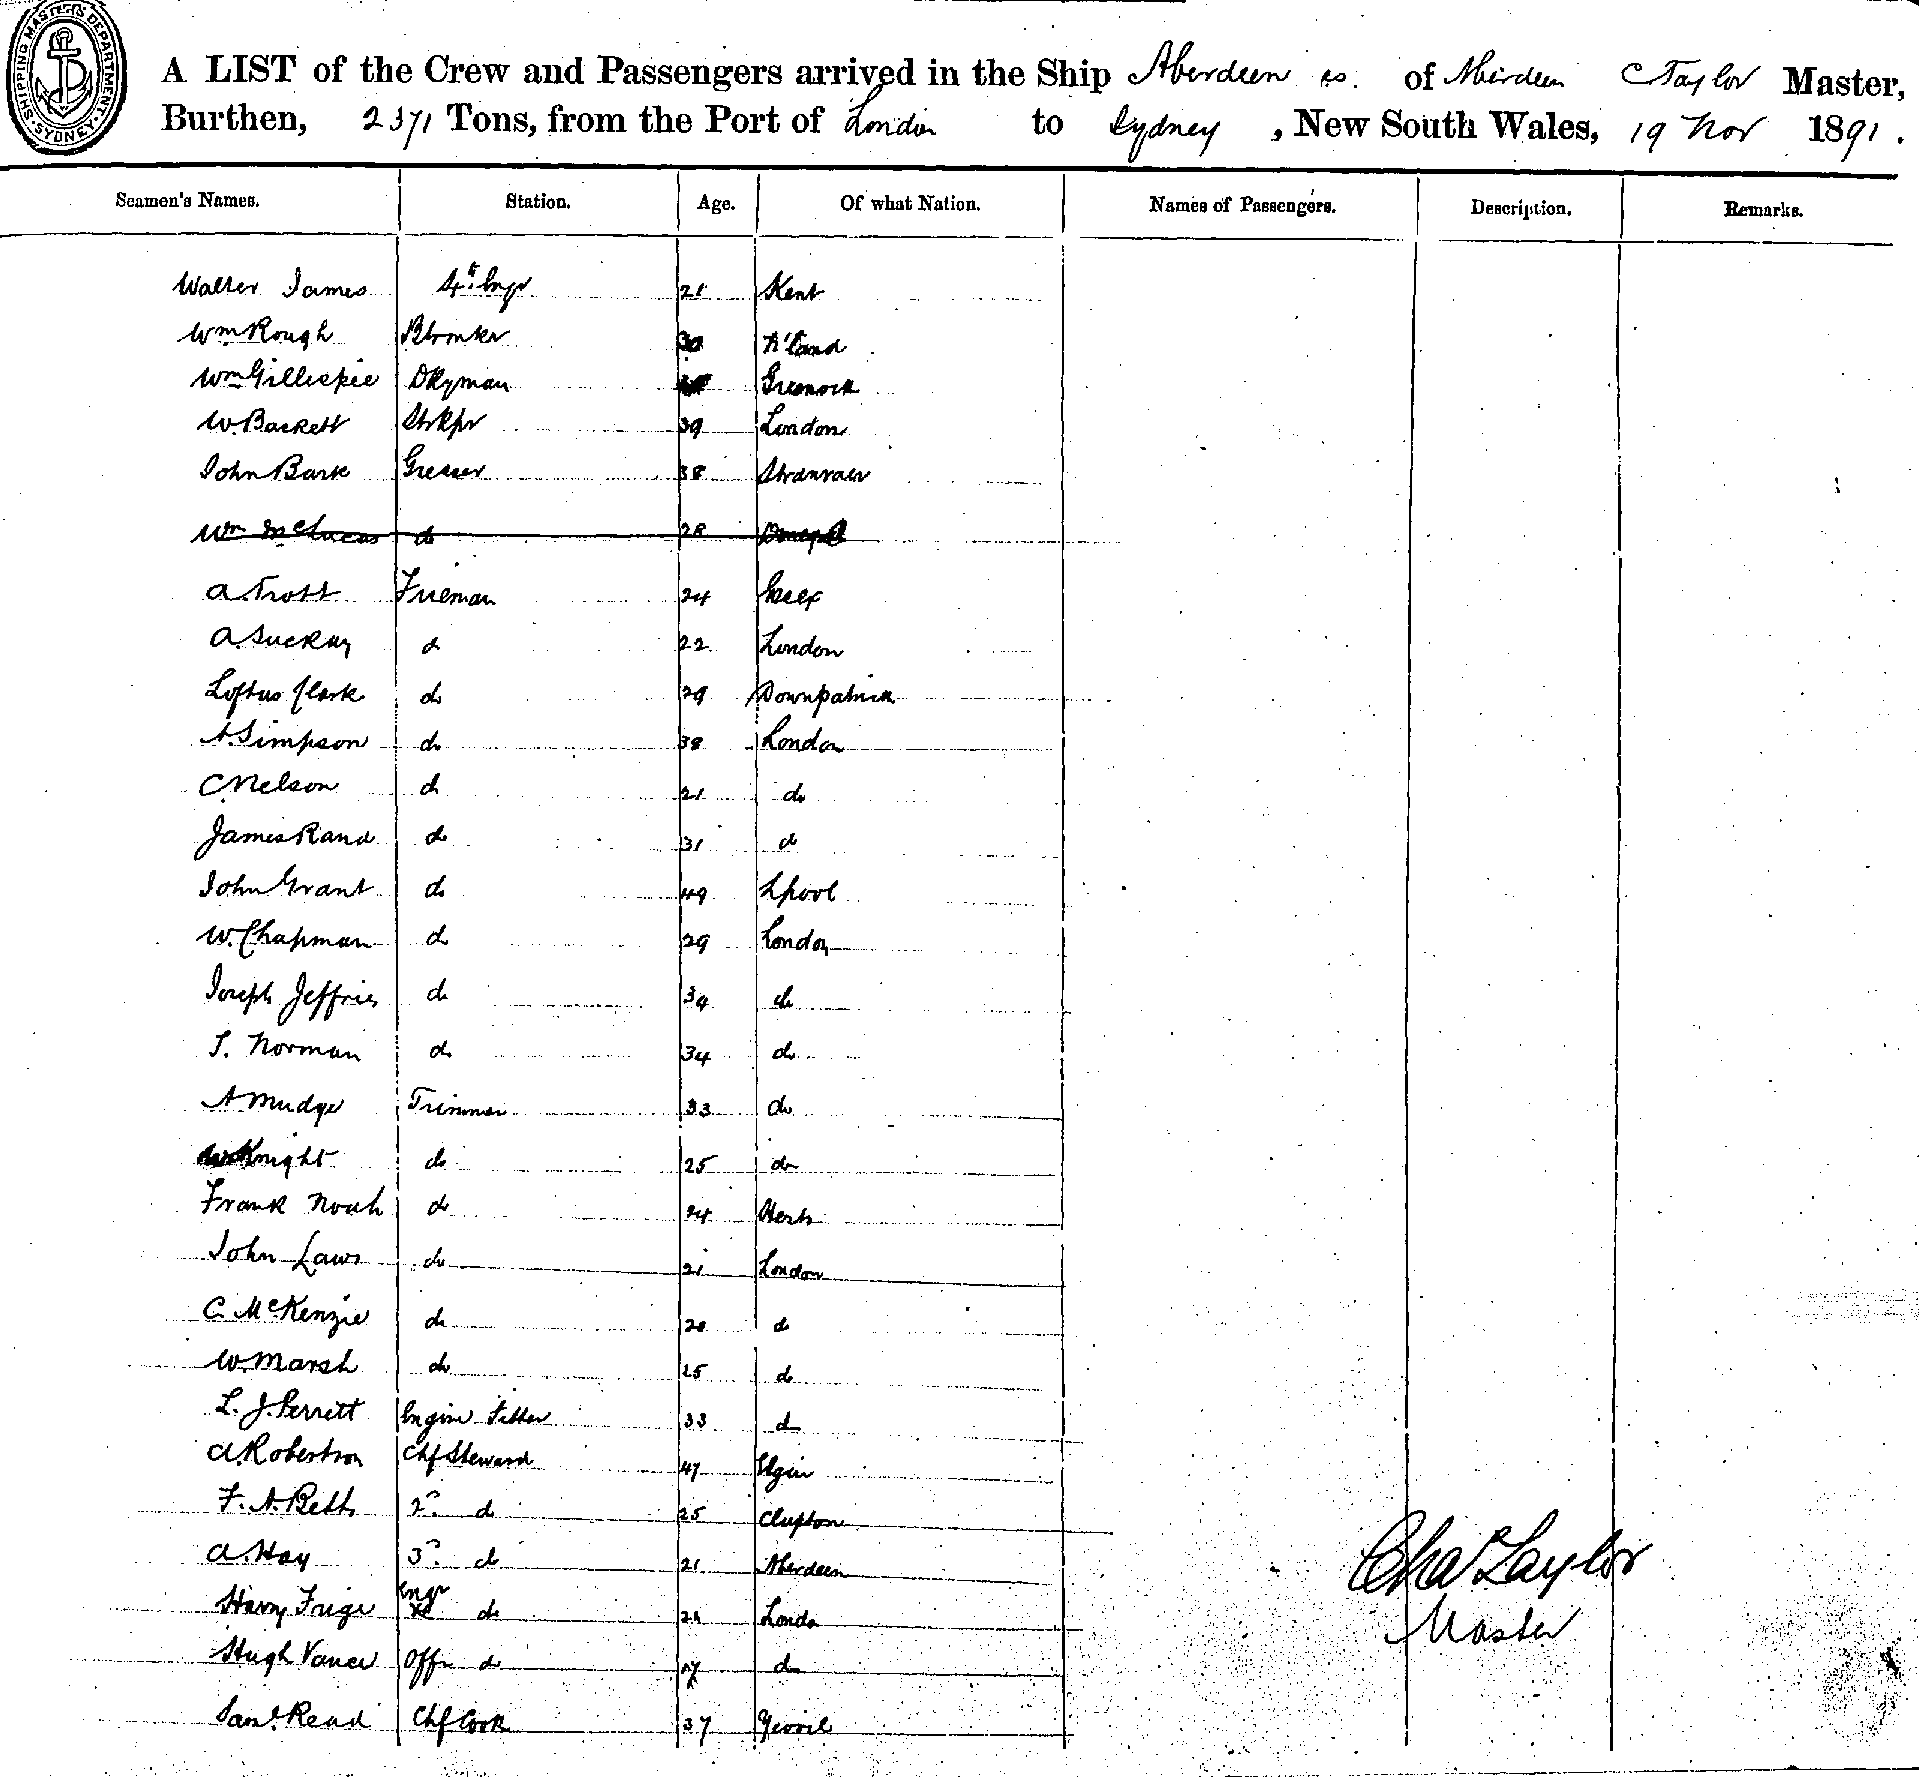 SHIPPING MASTER'S DEPARTMENT · SYDNEY ·
A LIST of the Crew and Passengers arrived in the Ship Aberdeen ss. of Aberdeen C Taylor Master,
Burthen, 2371 Tons, from the Port of London to Sydney, New South Wales, 19 Nov 1891.
Seamen's Names. Station. Age. Of what Nation. Names of Passengers. Description. Remarks.
Walter James 4th Engr 21 Kent
Wm Rough 30
Wm Gillespie Dkyman Greenock
W. Backett Strkpr 39 London
John Bark Greaser 38 Stranraer
Wm McLucas do 28 Donegal
A. Trott Fireman 24
A. Suckay do 22 London
Loftus Clark do 29 Downpatrick
A. Simpson do 38 London
C. Nelson do 21 do
James Rand do 31 do
John Grant do 49 Lpool
W. Chapman do 29 London
Joseph Jeffries do 34 do
T. Norman do 34 do
A Mudge Trimmer 33 do
W Knight do 25 do
Frank Noah do 24 Herts
John Laws do 21 London
C. McKenzie do 20 do
W. Marsh do 25 do
L. J. Perrett Engine Fitter 33 do
A. Robertson Chf Steward 47 Elgin
F. A. Betts 2d do 25 Clapton
A. Hay 3d do 21 Aberdeen
Harry Frige Engr do 21 London
Hugh Vance Offr do 17 do
Saml Read Chf Cook 37 Yeovil
Chas Taylor
Master